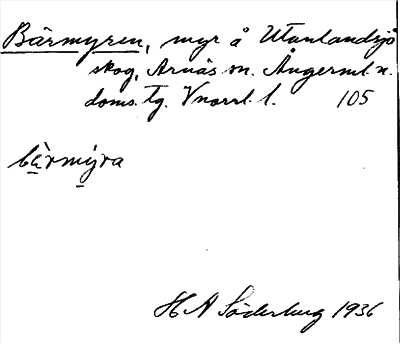 Bärmyren, myr å Utanlandsjö
skog, Arnäs sn. Ångerml. n.
doms. tg. Vnorrl. l. 105
bä̀rmýra
H A Söderberg 1936